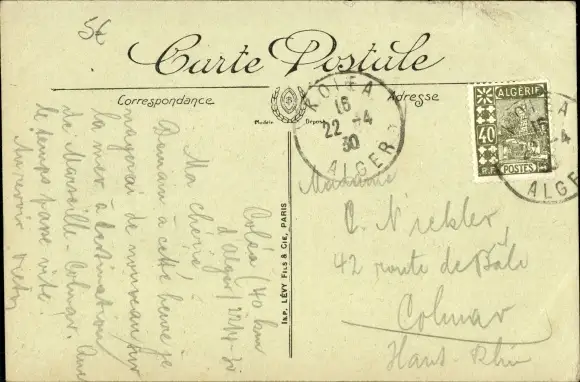 5f
Carte Postale
Correspondance
Adresse
Modèle Déposé
KOLEA
16
22-4
30
ALGER
ALGÉRIE
40
R.F. POSTES
16
-4
ALGE
I&P. LÉVY FILS & CIE, PARIS
Madame
C. Nickler,
42 route de Bâle
Colmar
Haut-Rhin
Coléa (40 km
d'Alger) 22/4 30
Ma chérie!
Demain à cette heure je
nagerai de nouveau sur
la mer à destination
de Marseille-Colmar.
le temps passe vite!
Au revoir